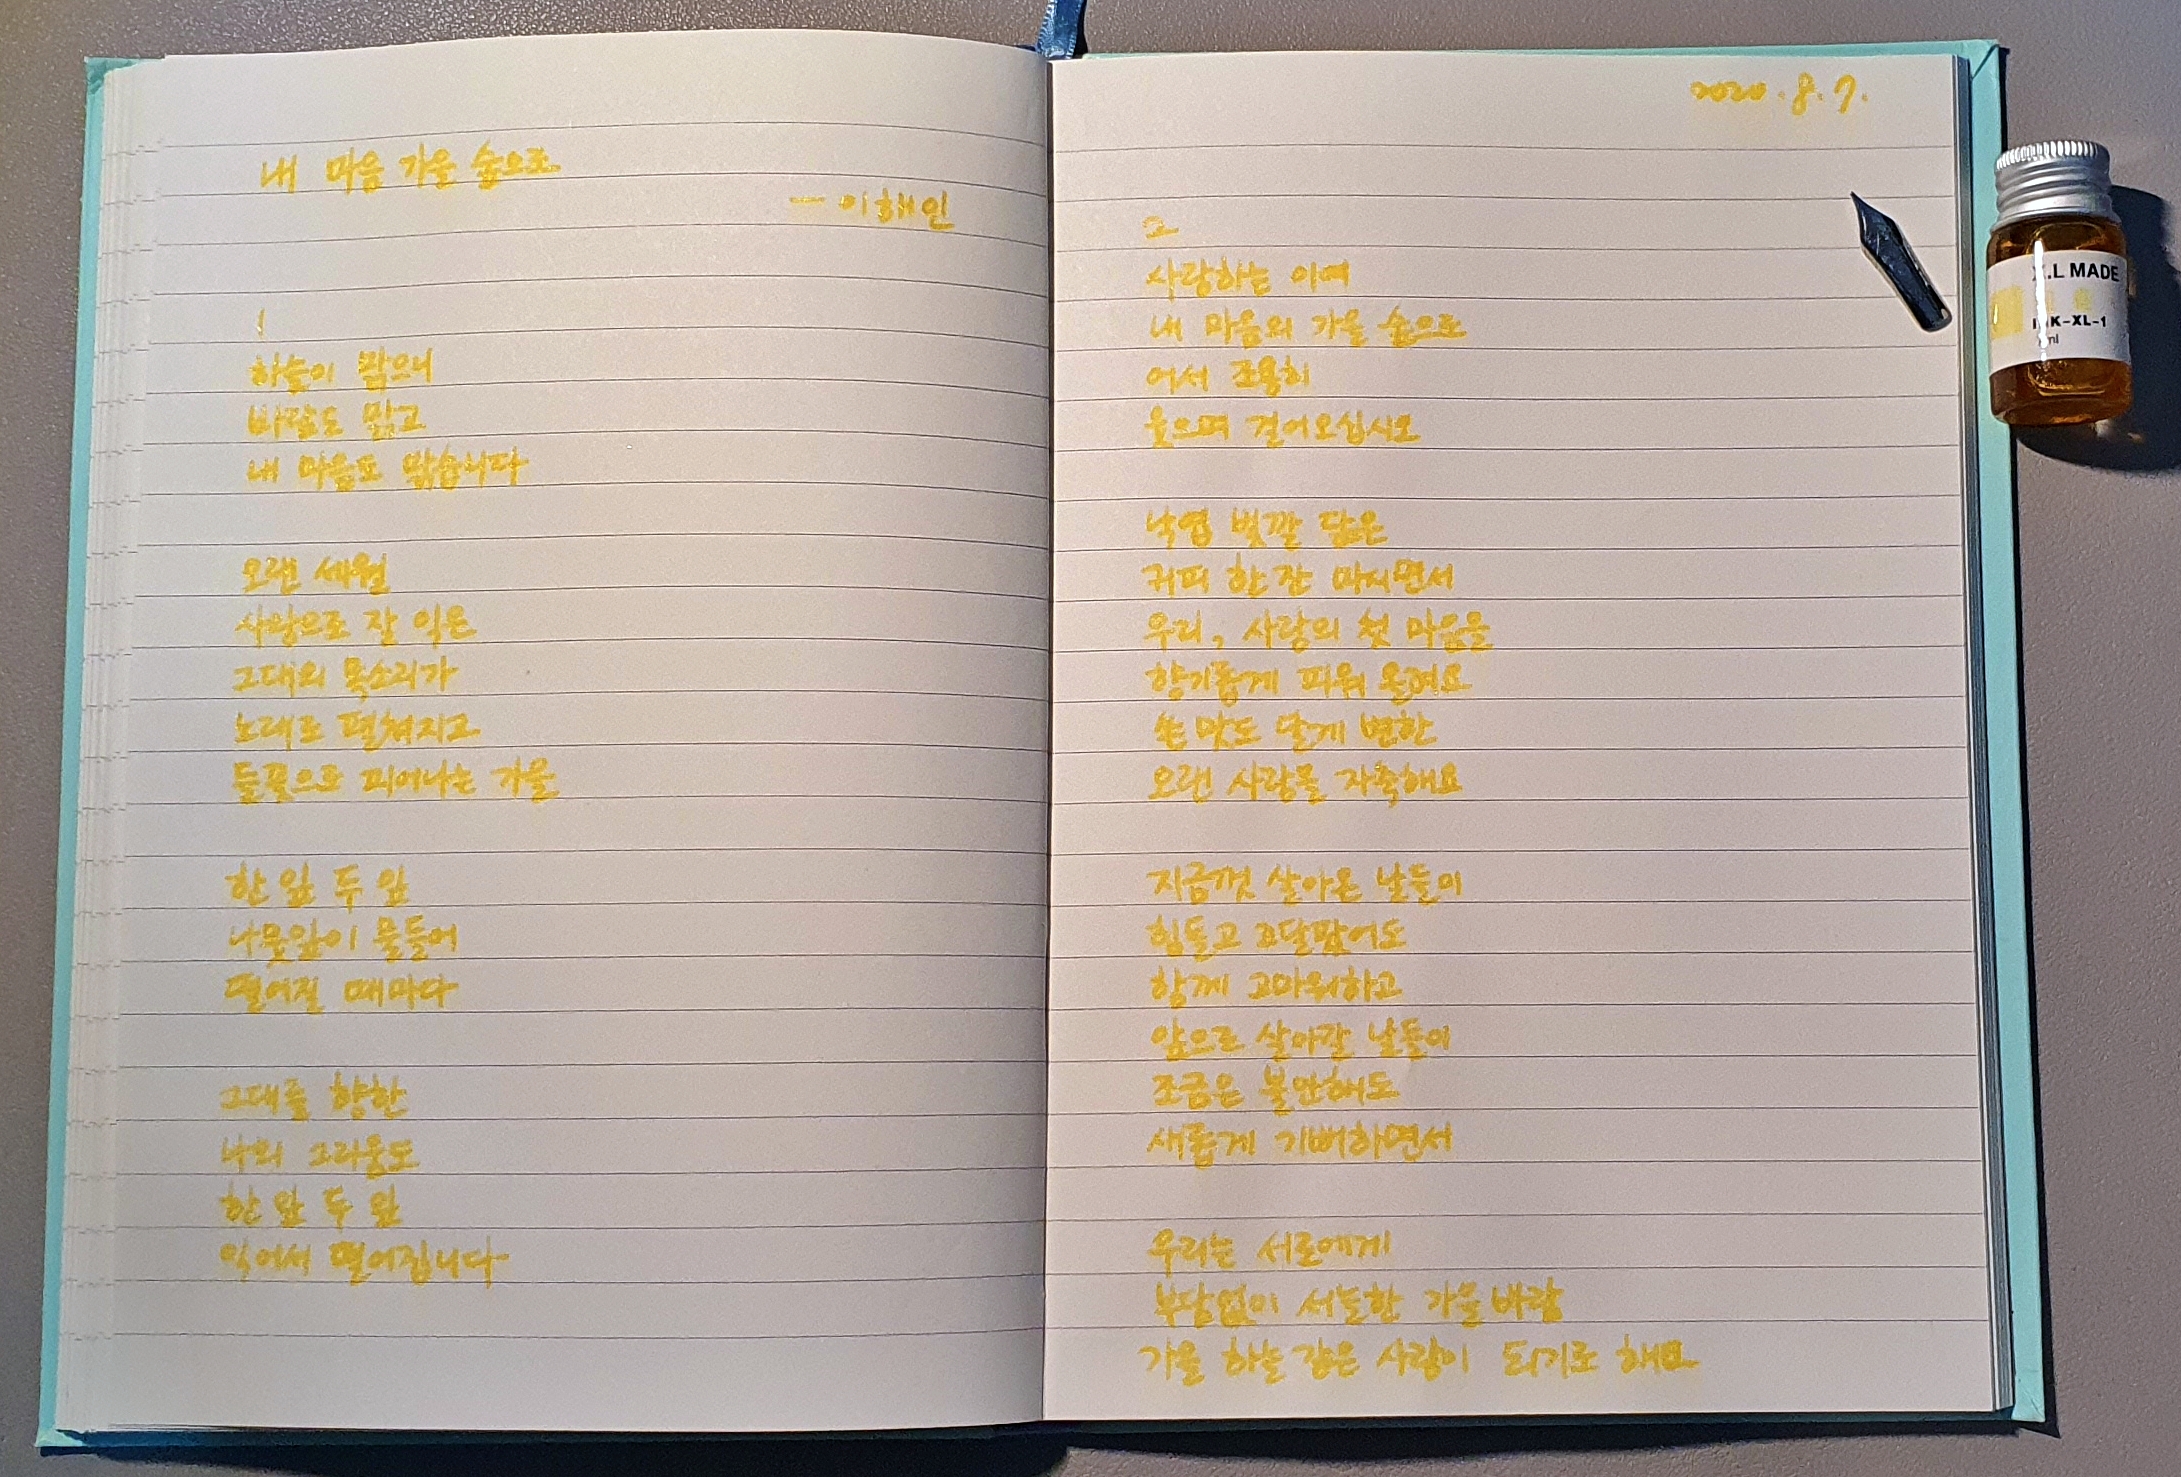 내 마음 가을 숲으로
— 이해인
1
하늘이 맑으니
바람도 맑고
내 마음도 맑습니다
오랜 세월
사랑으로 잘 익은
그대의 목소리가
노래로 펼쳐지고
들꽃으로 피어나는 가을
한 잎 두 잎
나뭇잎이 물들어
떨어질 때마다
그대를 향한
나의 그리움도
한 잎 두 잎
익어서 떨어집니다
2020.8.7.
2
사랑하는 이여
내 마음의 가을 숲으로
어서 조용히
웃으며 걸어오십시오
낙엽 빛깔 닮은
커피 한 잔 마시면서
우리, 사랑의 첫 마음을
향기롭게 피워 올려요
쓴 맛도 달게 변한
오랜 사랑을 자축해요
지금껏 살아온 날들이
힘들고 고달팠어도
함께 고마워하고
앞으로 살아갈 날들이
조금은 불안해도
새롭게 기뻐하면서
우리는 서로에게
부담없이 서늘한 가을바람
가을 하늘 같은 사람이 되기로 해요
X.L MADE
INK-XL-1
ml